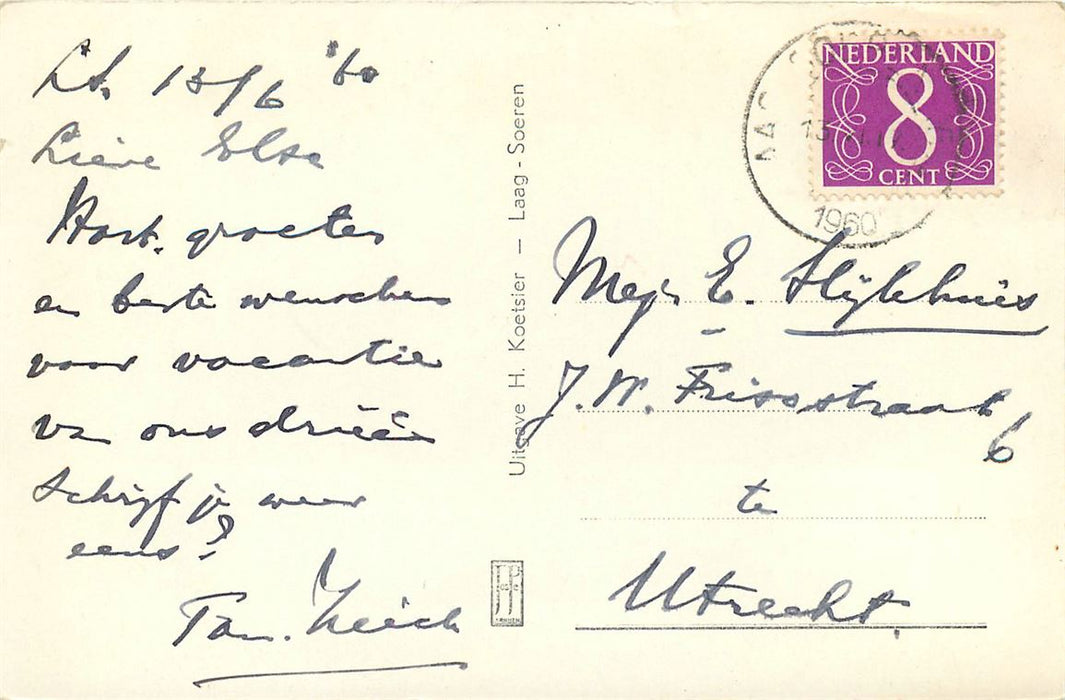 13/6 '60
Lieve Elsa
Hart. groeten
en beste wenschen
voor vacantie
van ons drieën
Schrijf je weer
eens?
Fam.
Uitgave H. Koetsier — Laag - Soeren
NEDERLAND
8
CENT
1960
Mej. E. Slijkhuis
J.W. Frisostraat
6
te
Utrecht.